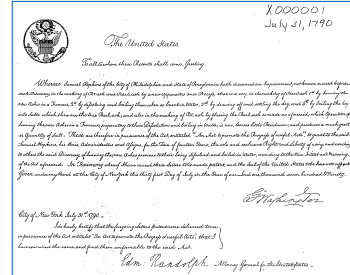 X000001
July 31, 1790
The United States
To all to whom these Presents shall come, Greeting.
Whereas Samuel Hopkins of the City of Philadelphia and State of Pennsylvania hath discovered an Improvement, not known or used before such
Discovery, in the making of Pot ash and Pearl ash by a new Apparatus and Process; that is to say, in the making of Pearl ash 1st by burning the
raw Ashes in a Furnace, 2d by dissolving and boiling them when so burnt in Water, 3d by drawing off and settling the Ley, and 4th by boiling the Ley
into Salts which then are the true Pearl ash; and also in the making of Pot ash by fluxing the Pearl ash so made as aforesaid; which Operation of
burning the raw Ashes in a Furnace, preparatory to their Dissolution and boiling in Water, is new, leaves little Residuum; and produces a much greater
Quantity of Salt: These are therefore in pursuance of the Act, entitled "An Act to promote the Progress of useful Arts", to grant to the said
Samuel Hopkins, his Heirs, Administrators and Assigns, for the Term of fourteen Years, the sole and exclusive Right and Liberty of using and vending
to others the said Discovery of burning the raw Ashes previous to their being dissolved and boiled in Water, according to the true Intent and Meaning
of the Act aforesaid. In Testimony whereof I have caused these Letters to be made patent, and the Seal of the United States to be hereunto affixed
Given under my Hand at the City of New York this thirty first Day of July in the Year of our Lord one thousand seven hundred & Ninety.
G Washington
City of New York July 31st 1790.
I do hereby Certify that the foregoing Letters patent were delivered to me
in pursuance of the Act, entitled "An Act to promote the Progress of useful Arts"; that I
have examined the same, and find them conformable to the said Act.
Edm: Randolph Attorney General for the United States.